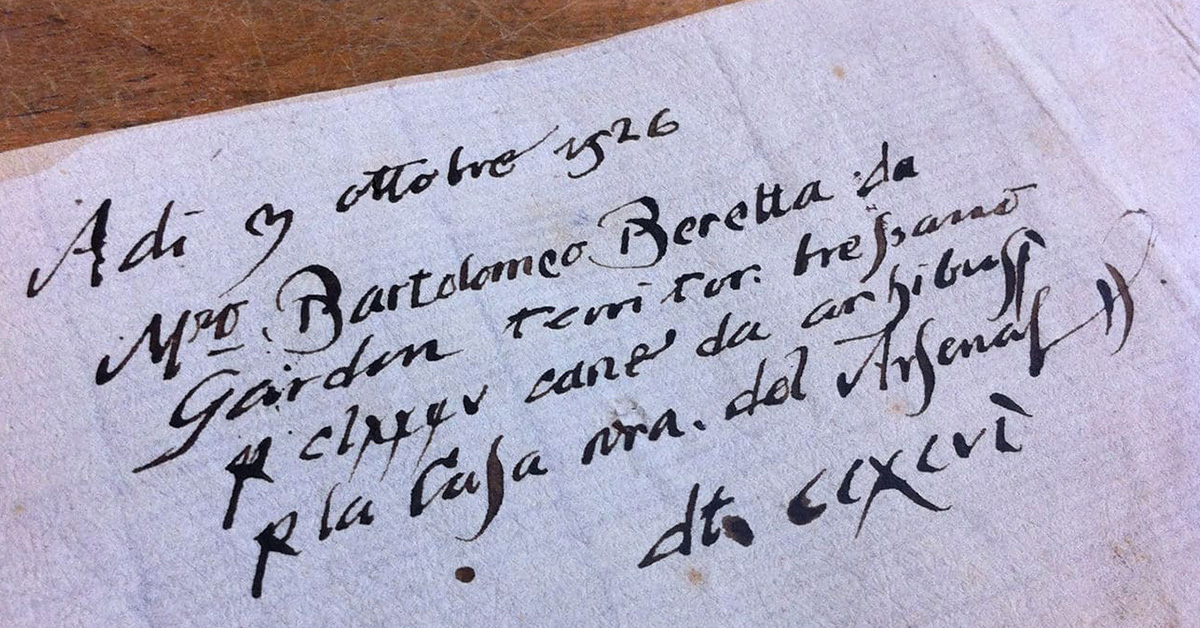 Adi 3 ottobre 1526
Mro Bartolomeo Beretta da
Gardon territor. bressano
p clxxxv cane da archibussi
p la Casa nra. del Arsenal
dt. cclxxxxvi